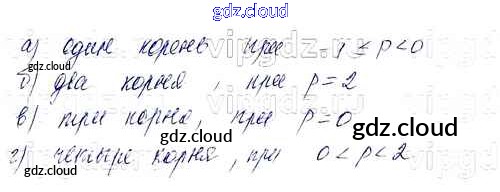 gdz.cloud
а) один корень при -1 ≤ p < 0
gdz.cloud
б) два корня, при p = 2
в) три корня, при p = 0
gdz.cloud gdz.cloud
г) четыре корня, при 0 < p < 2
gdz.cloud